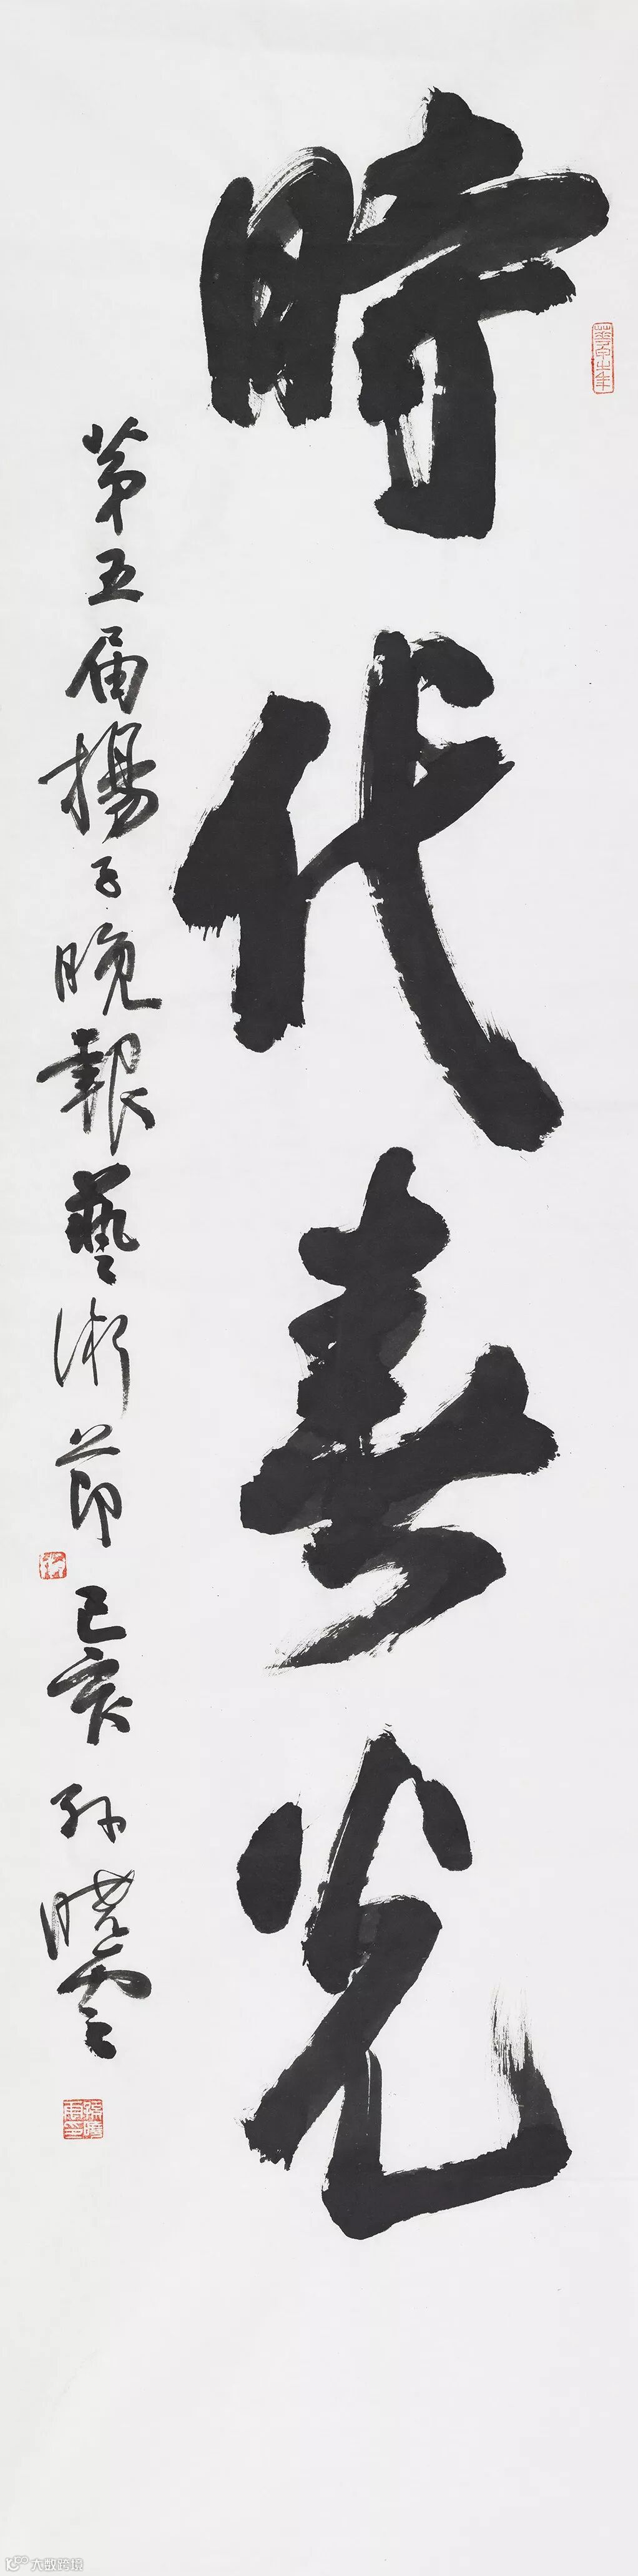 時代春光
第五届揚子晚報藝術節 己亥 孫曉雲
大蚁跨境